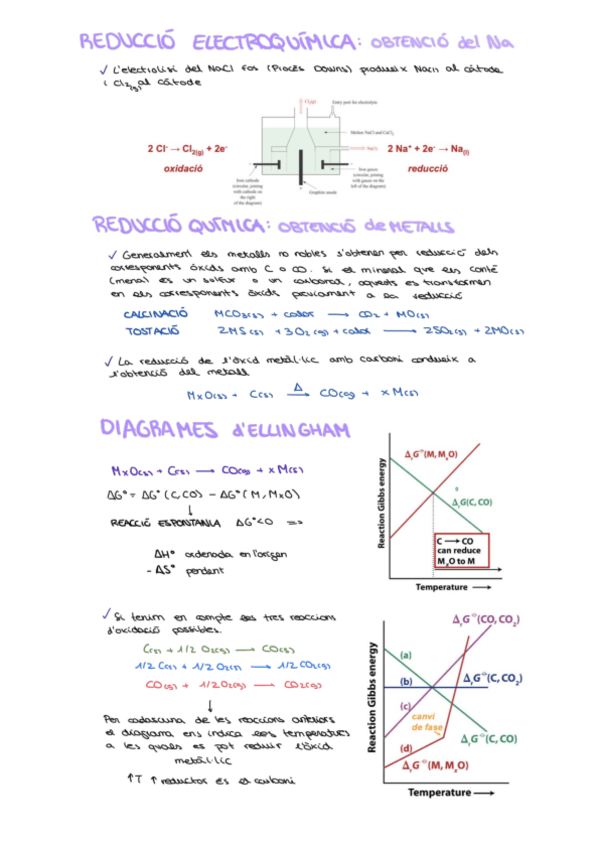 REDUCCIÓ ELECTROQUÍMICA: OBTENCIÓ del Na
✓ L'electròlisi del NaCl fos (Procés Downs) produeix Na(l) al càtode
i Cl2(g) al càtode
Cl2(g)
Entry port for electrolyte
Molten NaCl and CaCl2
2 Cl- → Cl2(g) + 2e-
oxidació
2 Na+ + 2e- → Na(l)
reducció
Iron cathode
(circular, joining
with cathode on
the right
of the diagram)
Graphite anode
Iron gauze
(circular, joining
with gauze on the
left of the diagram)
REDUCCIÓ QUÍMICA: OBTENCIÓ de METALLS
✓ Generalment els metalls no nobles s'obtenen per reducció dels
corresponents òxids amb C o CO. Si el mineral que els conté
(mena) és un sulfur o un carbonat, aquests es transformen
en els corresponents òxids prèviament a la reducció
CALCINACIÓ MCO3(s) + calor → CO2 + MO(s)
TOSTACIÓ 2MS(s) + 3O2(g) + calor → 2SO2(s) + 2MO(s)
✓ La reducció de l'òxid metàl·lic amb carboni condueix a
l'obtenció del metall
MxO(s) + C(s) Δ→ CO(g) + xM(s)
DIAGRAMES d'ELLINGHAM
MxO(s) + C(s) → CO(g) + xM(s)
ΔG° = ΔG°(C,CO) - ΔG°(M,MxO)
↓
REACCIÓ ESPONTÀNIA ΔG°<0 =>
ΔH° ordenada en l'origen
-ΔS° pendent
Reaction Gibbs energy
ΔrG°(M, MxO)
ΔrG(C, CO)
C → CO
can reduce
MxO to M
Temperature →
✓ Si tenim en compte les tres reaccions
d'oxidació possibles.
C(s) + 1/2 O2(g) → CO(g)
1/2 C(s) + 1/2 O2(g) → 1/2 CO2(g)
CO(g) + 1/2O2(g) → CO2(g)
↓
Per cadascuna de les reaccions anteriors
el diagrama ens indica les temperatures
a les quals es pot reduir l'òxid
metàl·lic
↑T ↑ reductor és el carboni
Reaction Gibbs energy
ΔrG°(CO, CO2)
(a)
(b)
ΔrG°(C, CO2)
(c)
canvi
de fase
(d)
ΔrG°(C, CO)
ΔrG°(M, MxO)
Temperature →